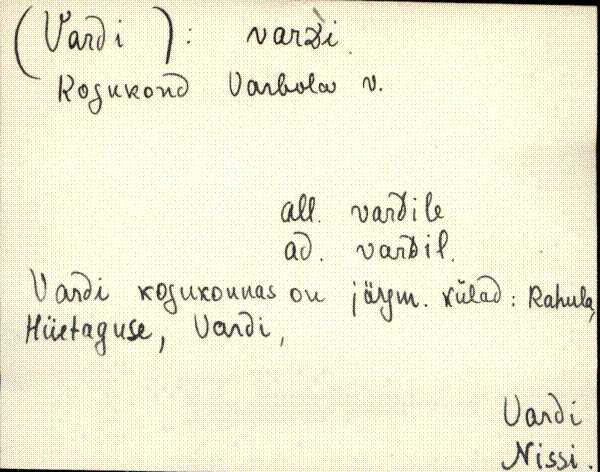 (Vardi): vardi.
Kogukond Varbola v.
all. vardile
ad. vardil.
Vardi kogukonnas on järgm. külad: Rahula,
Hüetaguse, Vardi,
Vardi
Nissi.